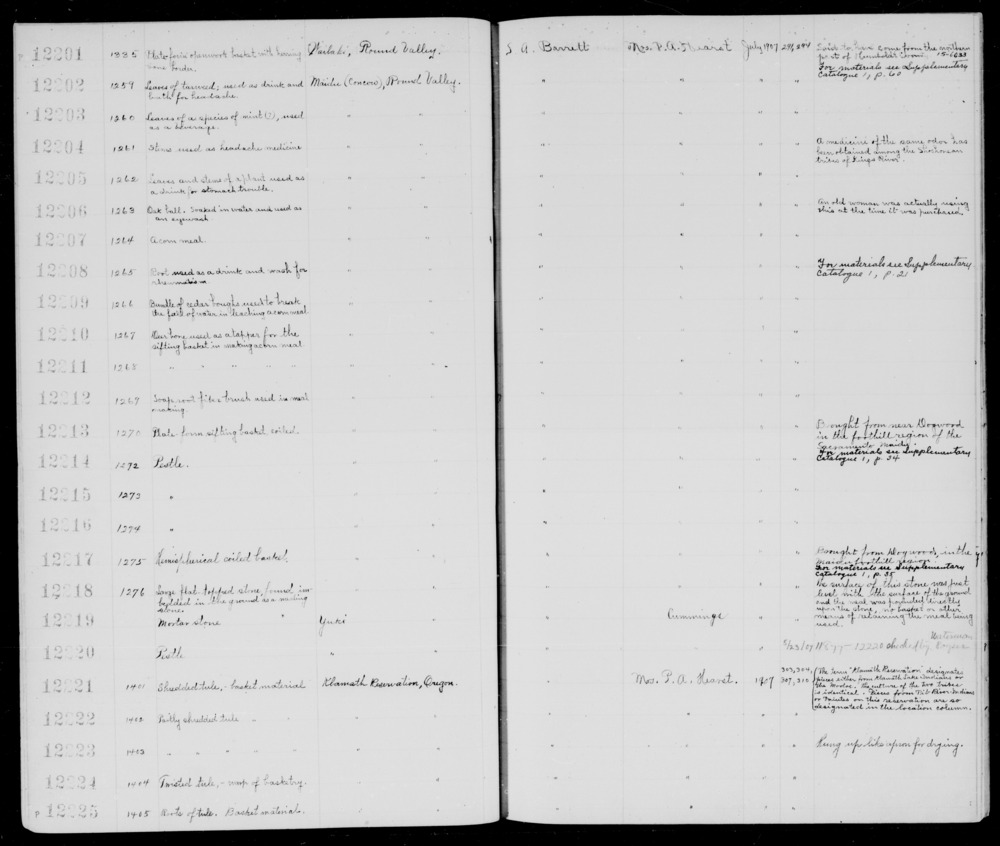 12201 1885 Plate form openwork basket with
Wailaki, Round Valley. S. A. Barrett Mrs. P. A. Hearst July 1907 Said to have come from the northern
part of Humboldt County. 15-6633
For materials see Supplementary
Catalogue 1, p. 60
12202 1259 Leaves of tarweed; used as drink and
bath for headache. Maidu (Concow), Round Valley. " " " "
12203 1260 Leaves of a species of mint (?), used
as a beverage. " " " " " "
12204 1261 Stems used as headache medicine " " " " " " A medicine of the same odor has
been obtained among the Shoshonean
tribes of Kings River.
12205 1262 Leaves and stems of a plant used as
a drink for stomach trouble. " " " " " "
12206 1263 Oak ball. Soaked in water and used as
an eyewash " " " " " " An old woman was actually using
this at the time it was purchased.
12207 1264 Acorn meal. " " " " " "
12208 1265 Root used as a drink and wash for
rheumatism " " " " " " For materials see Supplementary
Catalogue 1, p. 21
12209 1266 Bundle of cedar boughs used to break
the fall of water in leaching acorn meal " " " " " "
12210 1267 Deer bone used as a tapper for the
sifting basket in making acorn meal " " " " " "
12211 1268 " " " " " " " " " " "
12212 1269 Soap root fiber brush used in meal
making. " " " " " "
12213 1270 Plate form sifting basket coiled. " " " " " " Brought from near Dogwood
in the foothill region of the
Sacramento Maidu.
For materials see Supplementary
Catalogue 1, p. 34
12214 1272 Pestle. " " " " " "
12215 1273 " " " " " " "
12216 1274 " " " " " " "
12217 1275 Hemispherical coiled basket. " " " " " " Brought from Dogwood, in the
Maidu foothill region.
For materials see Supplementary
Catalogue 1, p. 35
12218 1276 Large flat topped stone, found im-
bedded in the ground as a mealing
stone. " " " " " " The surface of this stone was just
level with the surface of the ground
and the meal was pounded directly
upon the stone, no basket or other
means of retaining the meal being
used.
12219 Mortar stone " Yuki " Cummings
12220 Pestle " " 5/23/07 12220 checked by
12221 1401 Shredded tule, - basket material Klamath Reservation, Oregon. " Mrs. P. A. Hearst. 1907 303, 304,
307, 310 The term "Klamath Reservation" designates
pieces either from Klamath Lake Indians or
the Modoc. The culture of the two tribes
is identical. Pieces from Pit River Indians
or Paiutes on this reservation are so
designated in the location column.
12222 1402 Partly shredded tule " " " " " " " "
12223 1403 " " " " " " " " " " Hung up like apron for drying.
12224 1404 Twisted tule, - warp of basketry. " " " " " "
P 12225 1405 Roots of tule. Basket materials. " " " " " "